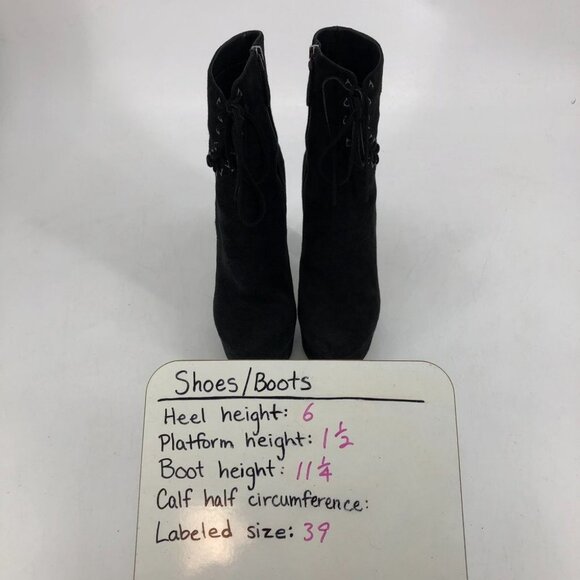 Shoes/Boots
Heel height: 6
Platform height: 1 1/2
Boot height: 11 1/4
Calf half circumference:
Labeled size: 39